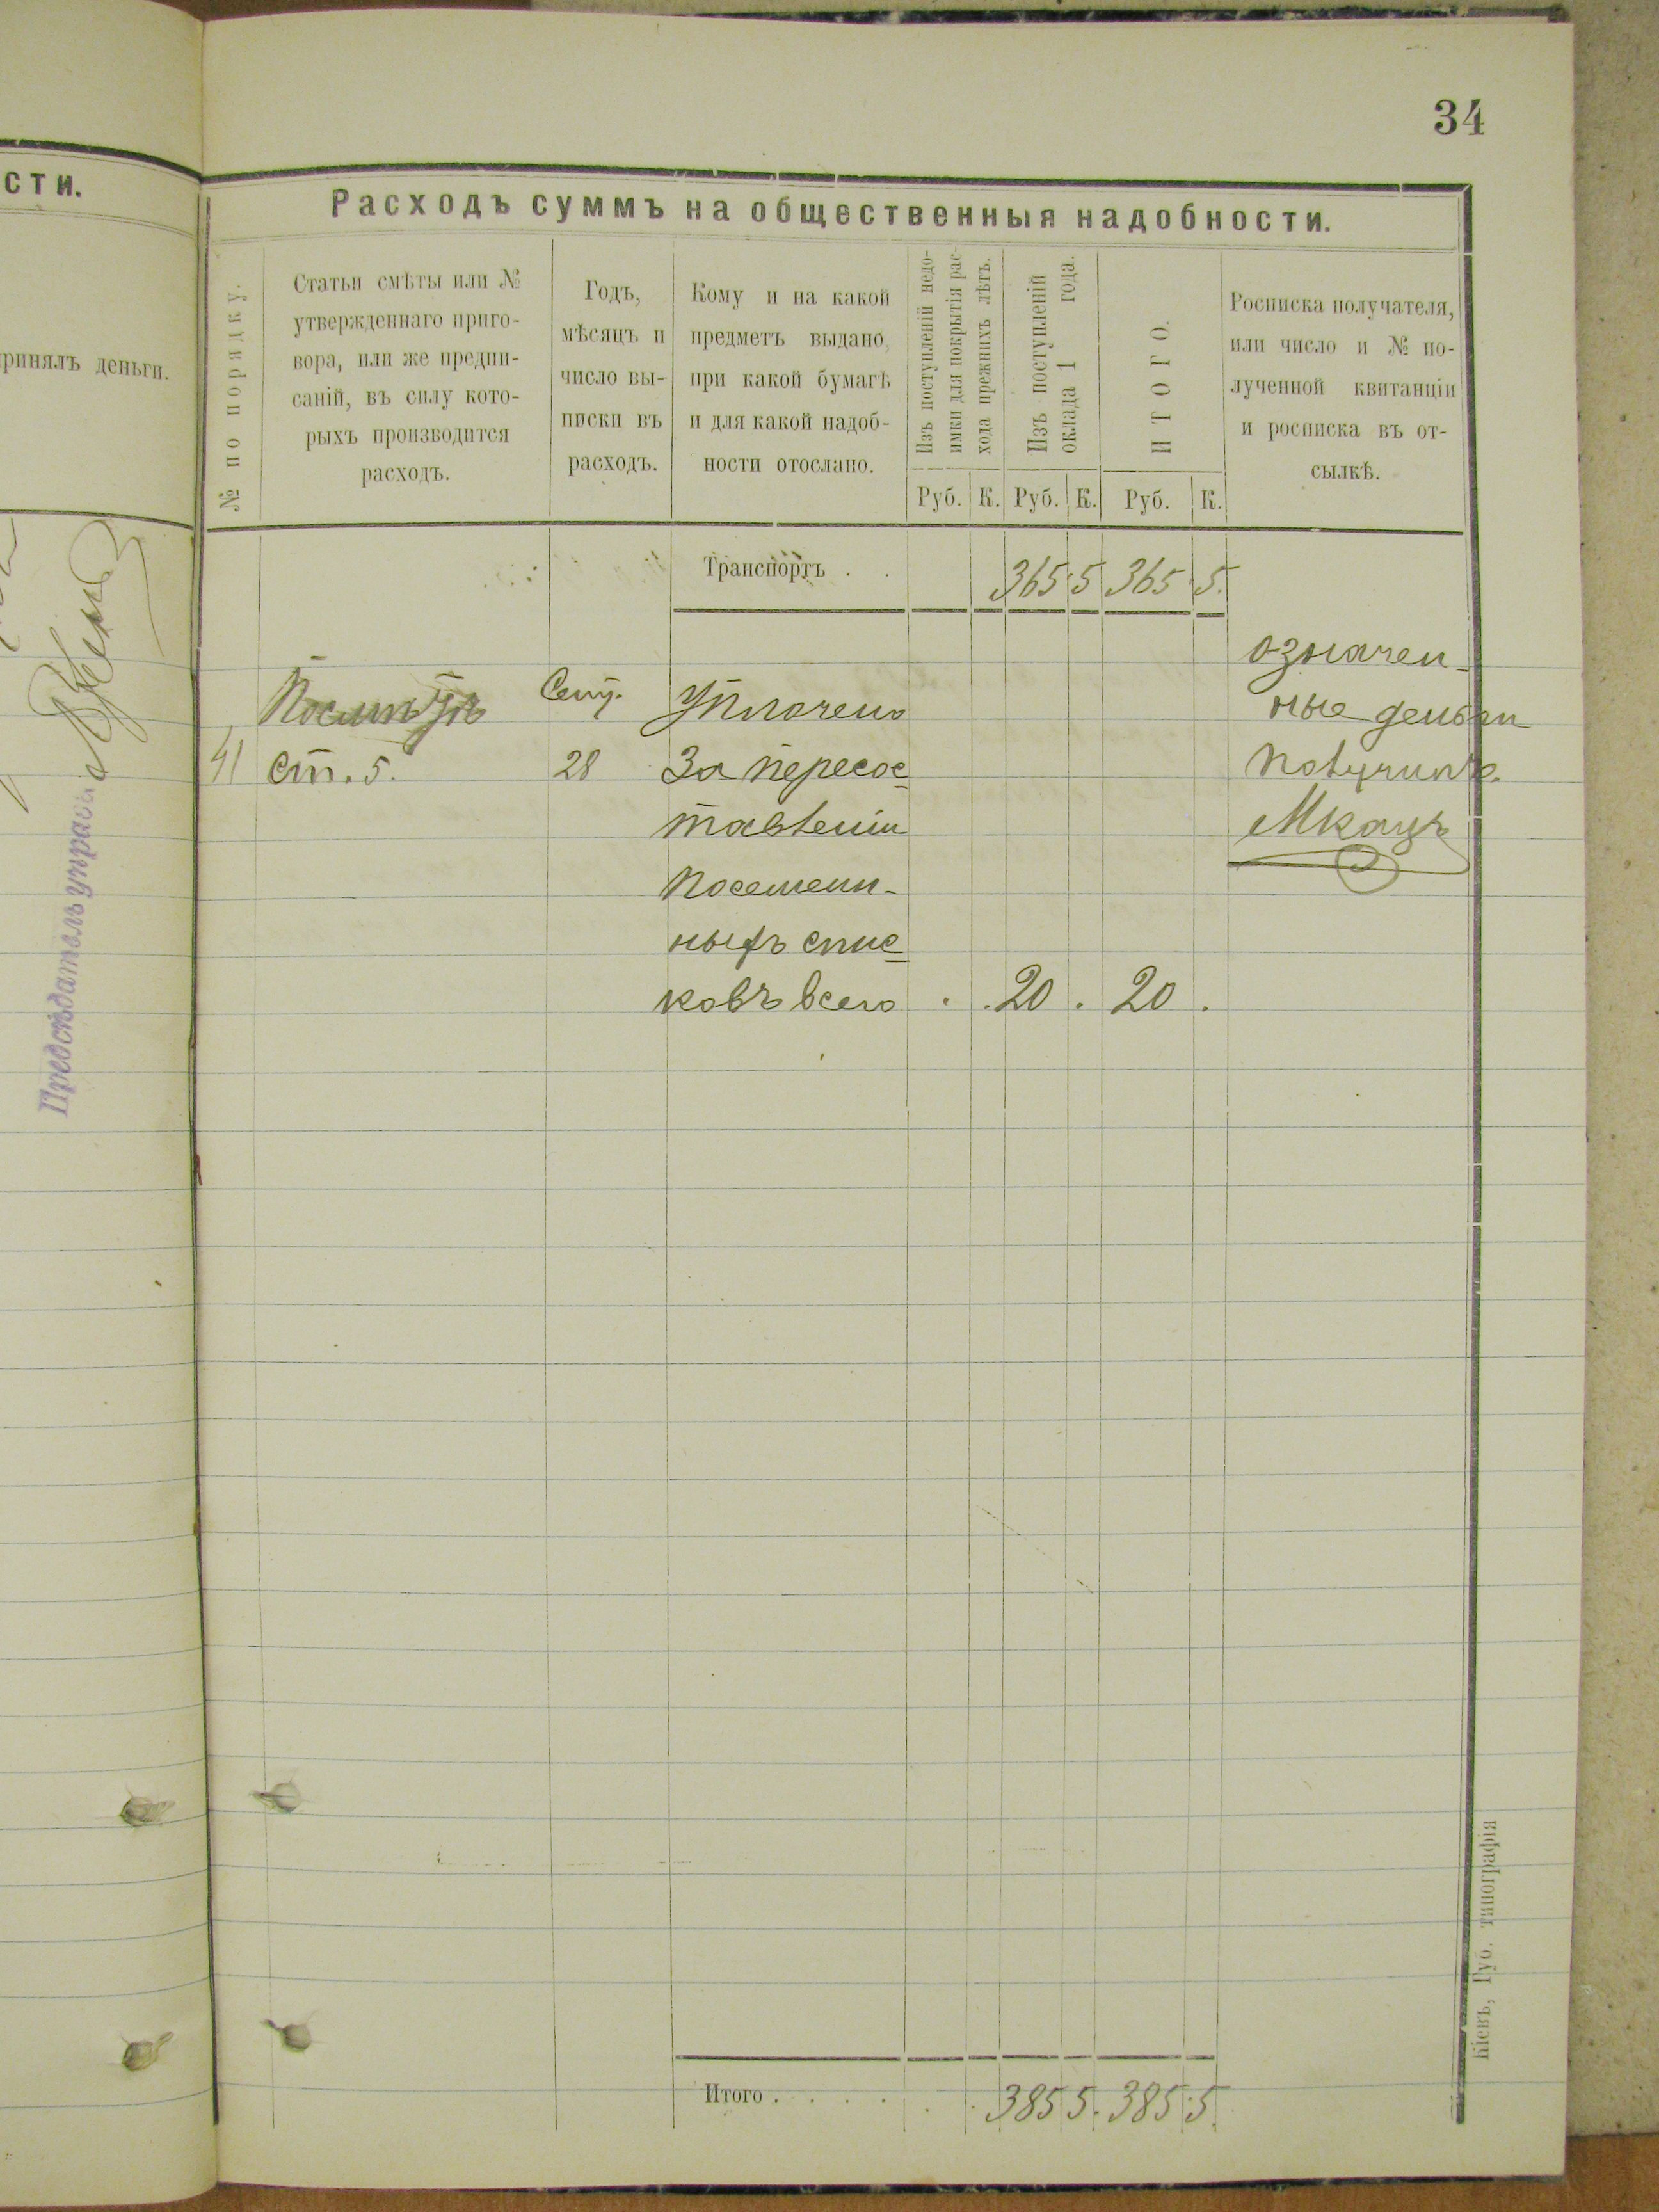 34
сти.
ринялъ деньги.
Предсѣдатель управы
Расходъ суммъ на общественныя надобности.
№ по порядку.
Статьи смѣты или №
утвержденнаго приго-
вора, или же предпи-
саній, въ силу кото-
рыхъ производится
расходъ.
Годъ,
мѣсяцъ и
число вы-
писки въ
расходъ.
Кому и на какой
предметъ выдано,
при какой бумагѣ
и для какой надоб-
ности отослано.
Изъ поступленій недо-
имки для покрытія рас-
хода прежнихъ лѣтъ.
Изъ поступленій
оклада 1 года.
ИТОГО.
Руб. К. Руб. К. Руб. К.
Росписка получателя,
или число и № по-
лученной квитанціи
и росписка въ от-
сылкѣ.
Транспортъ . . 365 5 365 5.
41 ст. 5.
Сент.
28
Уплочено
За пересос
тавленіи
посемеин-
ныхъ спис
ковъ всего . . 20 . 20 .
означен-
ные деньги
получилъ
МКацъ
Итого . . . . . . 385 5. 385 5.
Кіевъ, Губ. типографія